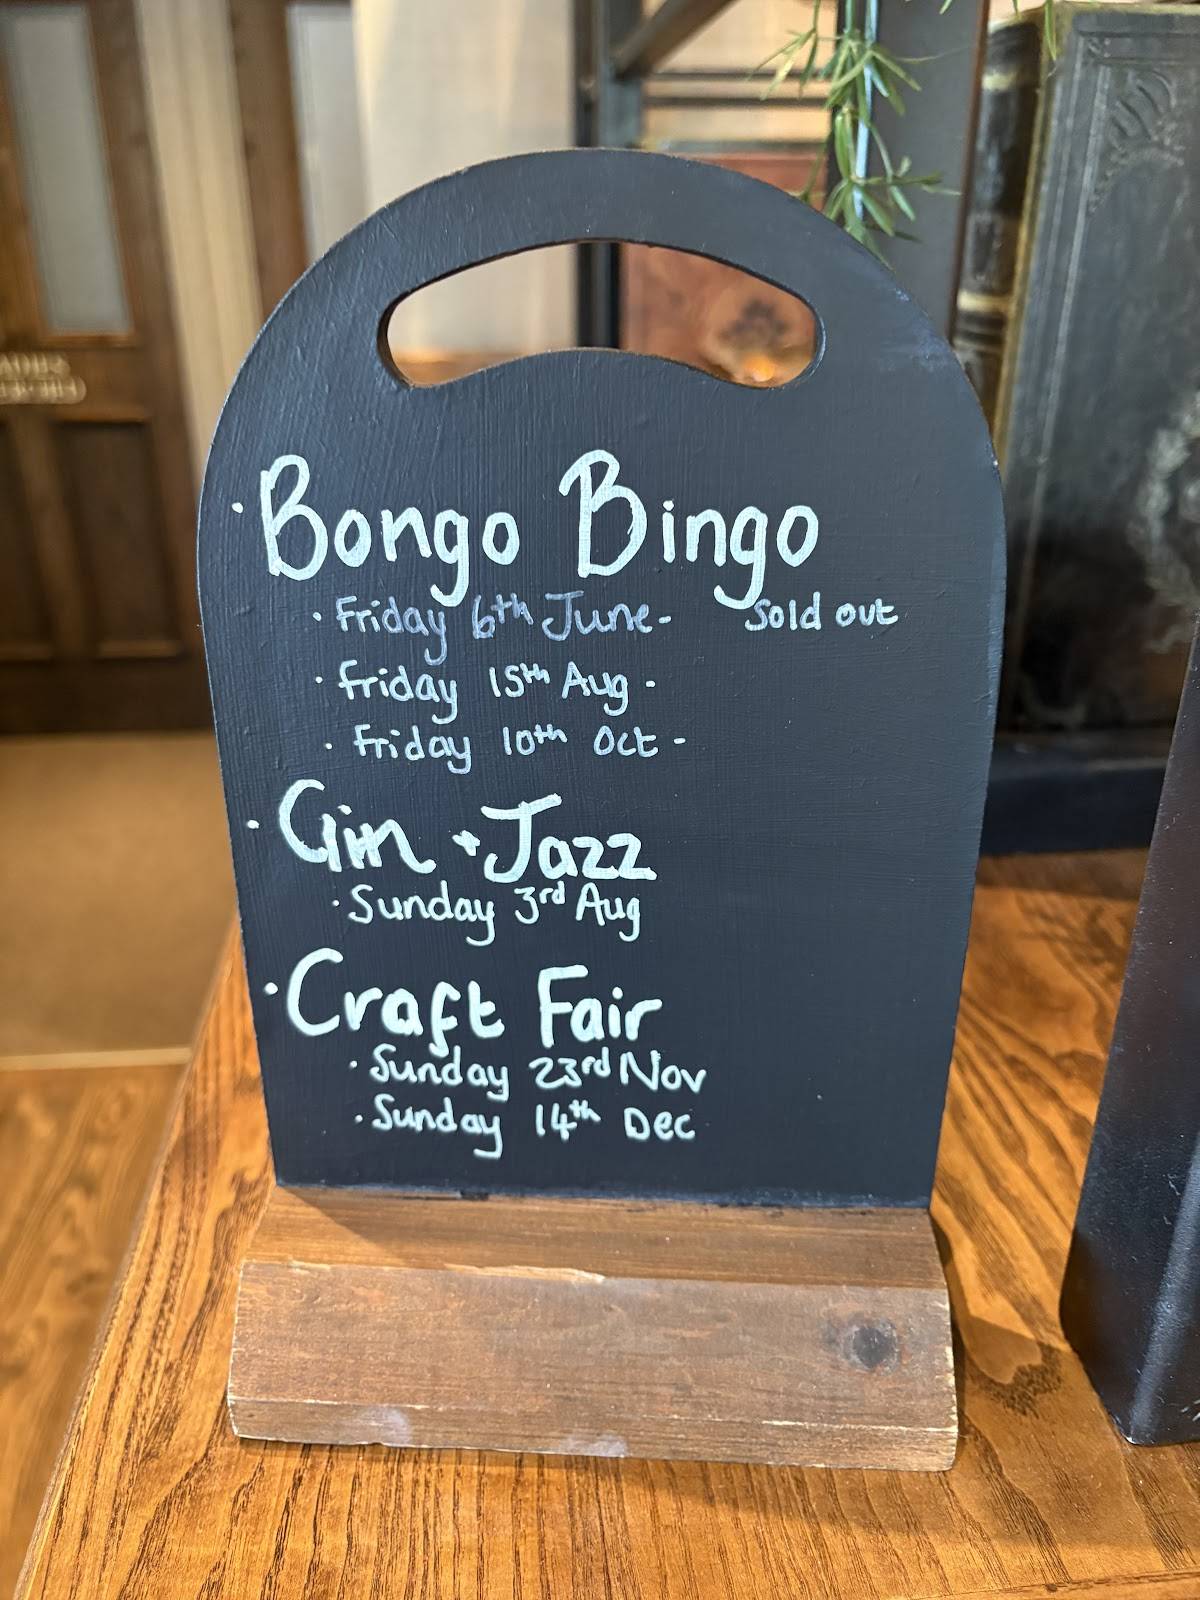 · Bongo Bingo
· Friday 6th June - Sold out
· Friday 15th Aug -
· Friday 10th Oct -
· Gin + Jazz
· Sunday 3rd Aug
· Craft Fair
· Sunday 23rd Nov
· Sunday 14th Dec